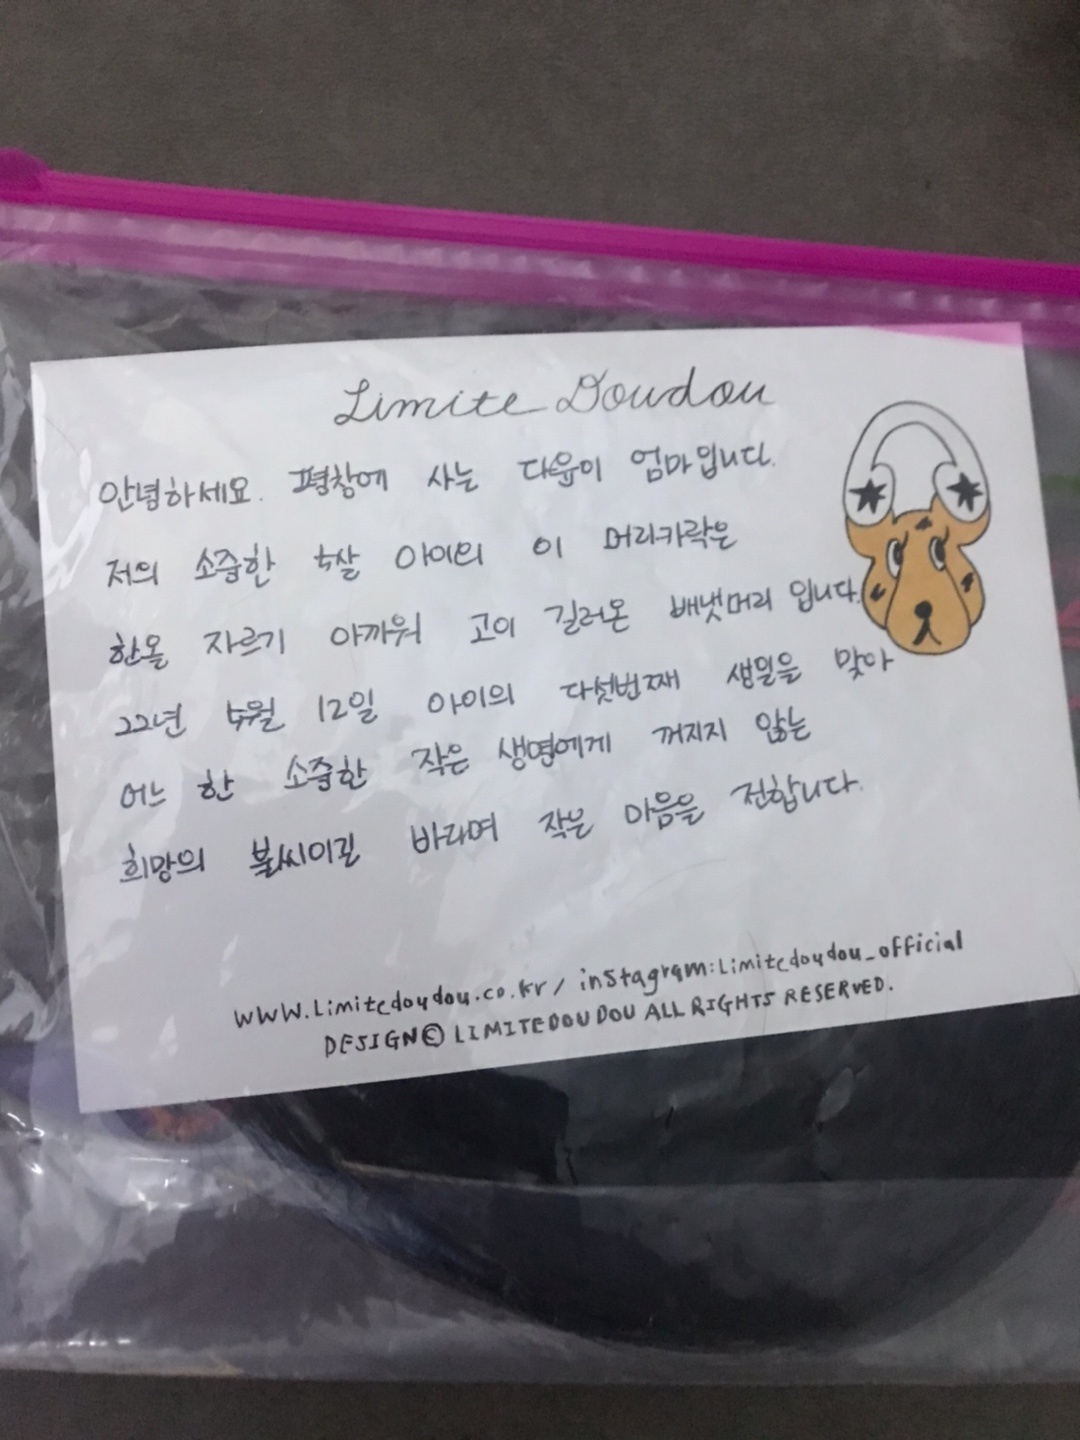 Limite Doudou
안녕하세요. 평창에 사는 다윤이 엄마입니다.
저의 소중한 5살 아이의 이 머리카락은
한올 자르기 아까워 고이 길러온 배냇머리 입니다.
22년 5월 12일 아이의 다섯번째 생일을 맞아
어느 한 소중한 작은 생명에게 꺼지지 않는
희망의 불씨이길 바라며 작은 마음을 전합니다.
www.Limitedoudou.co.kr/ instagram:Limitedoudou_official
DESIGN© LIMITEDOUDOU ALL RIGHTS RESERVED.